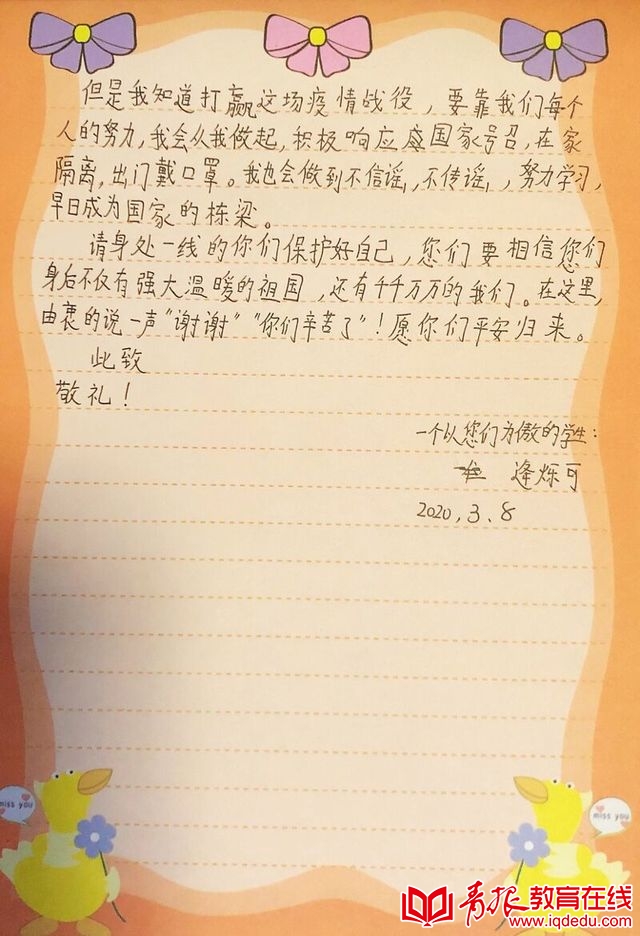 但是我知道打赢这场疫情战役，要靠我们每个
人的努力，我会从我做起，积极响应国家号召，在家
隔离，出门戴口罩。我也会做到不信谣，不传谣，，努力学习，
早日成为国家的栋梁。
请身处一线的你们保护好自己，您们要相信您们
身后不仅有强大温暖的祖国，还有千千万万的我们。在这里，
由衷的说一声“谢谢”“你们辛苦了”！愿你们平安归来。
此致
敬礼！
一个以您们为傲的学生：
逄烁可
2020.3.8
miss you
miss you
青报教育在线
www.iqdedu.com